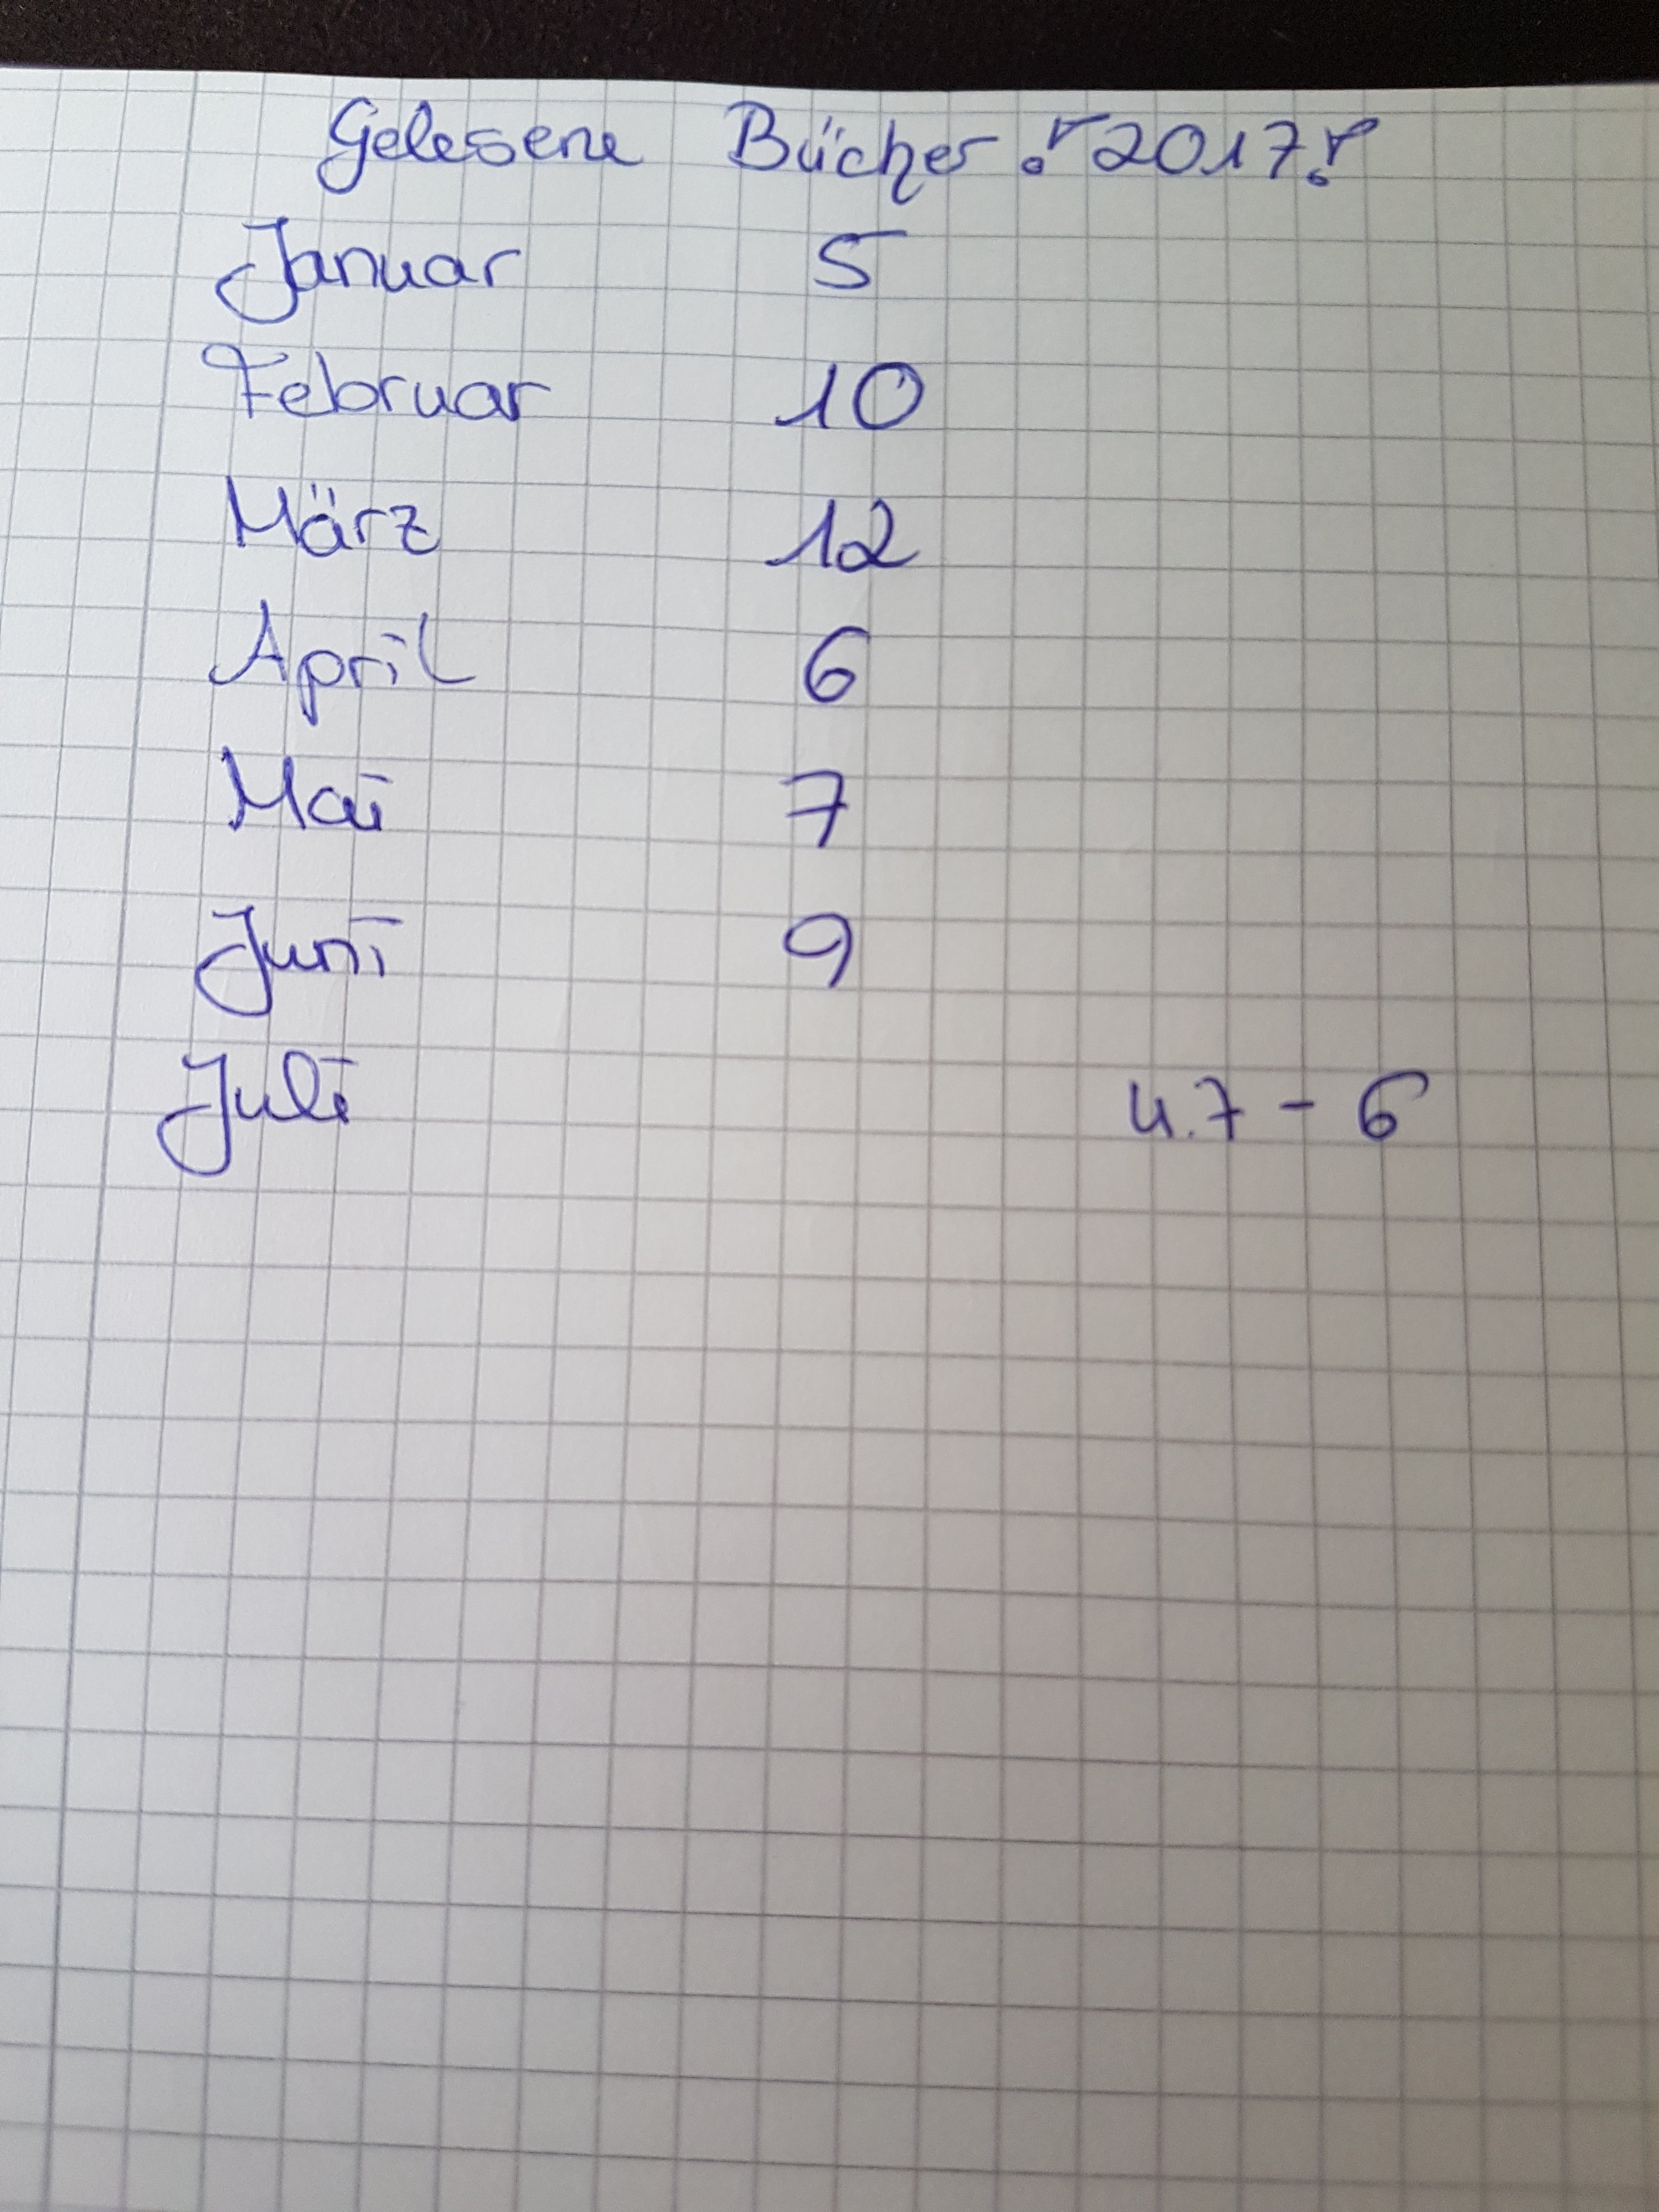 Gelesene Bücher! 2017!
Januar 5
Februar 10
März 12
April 6
Mai 7
Juni 9
Juli 4.7 - 6